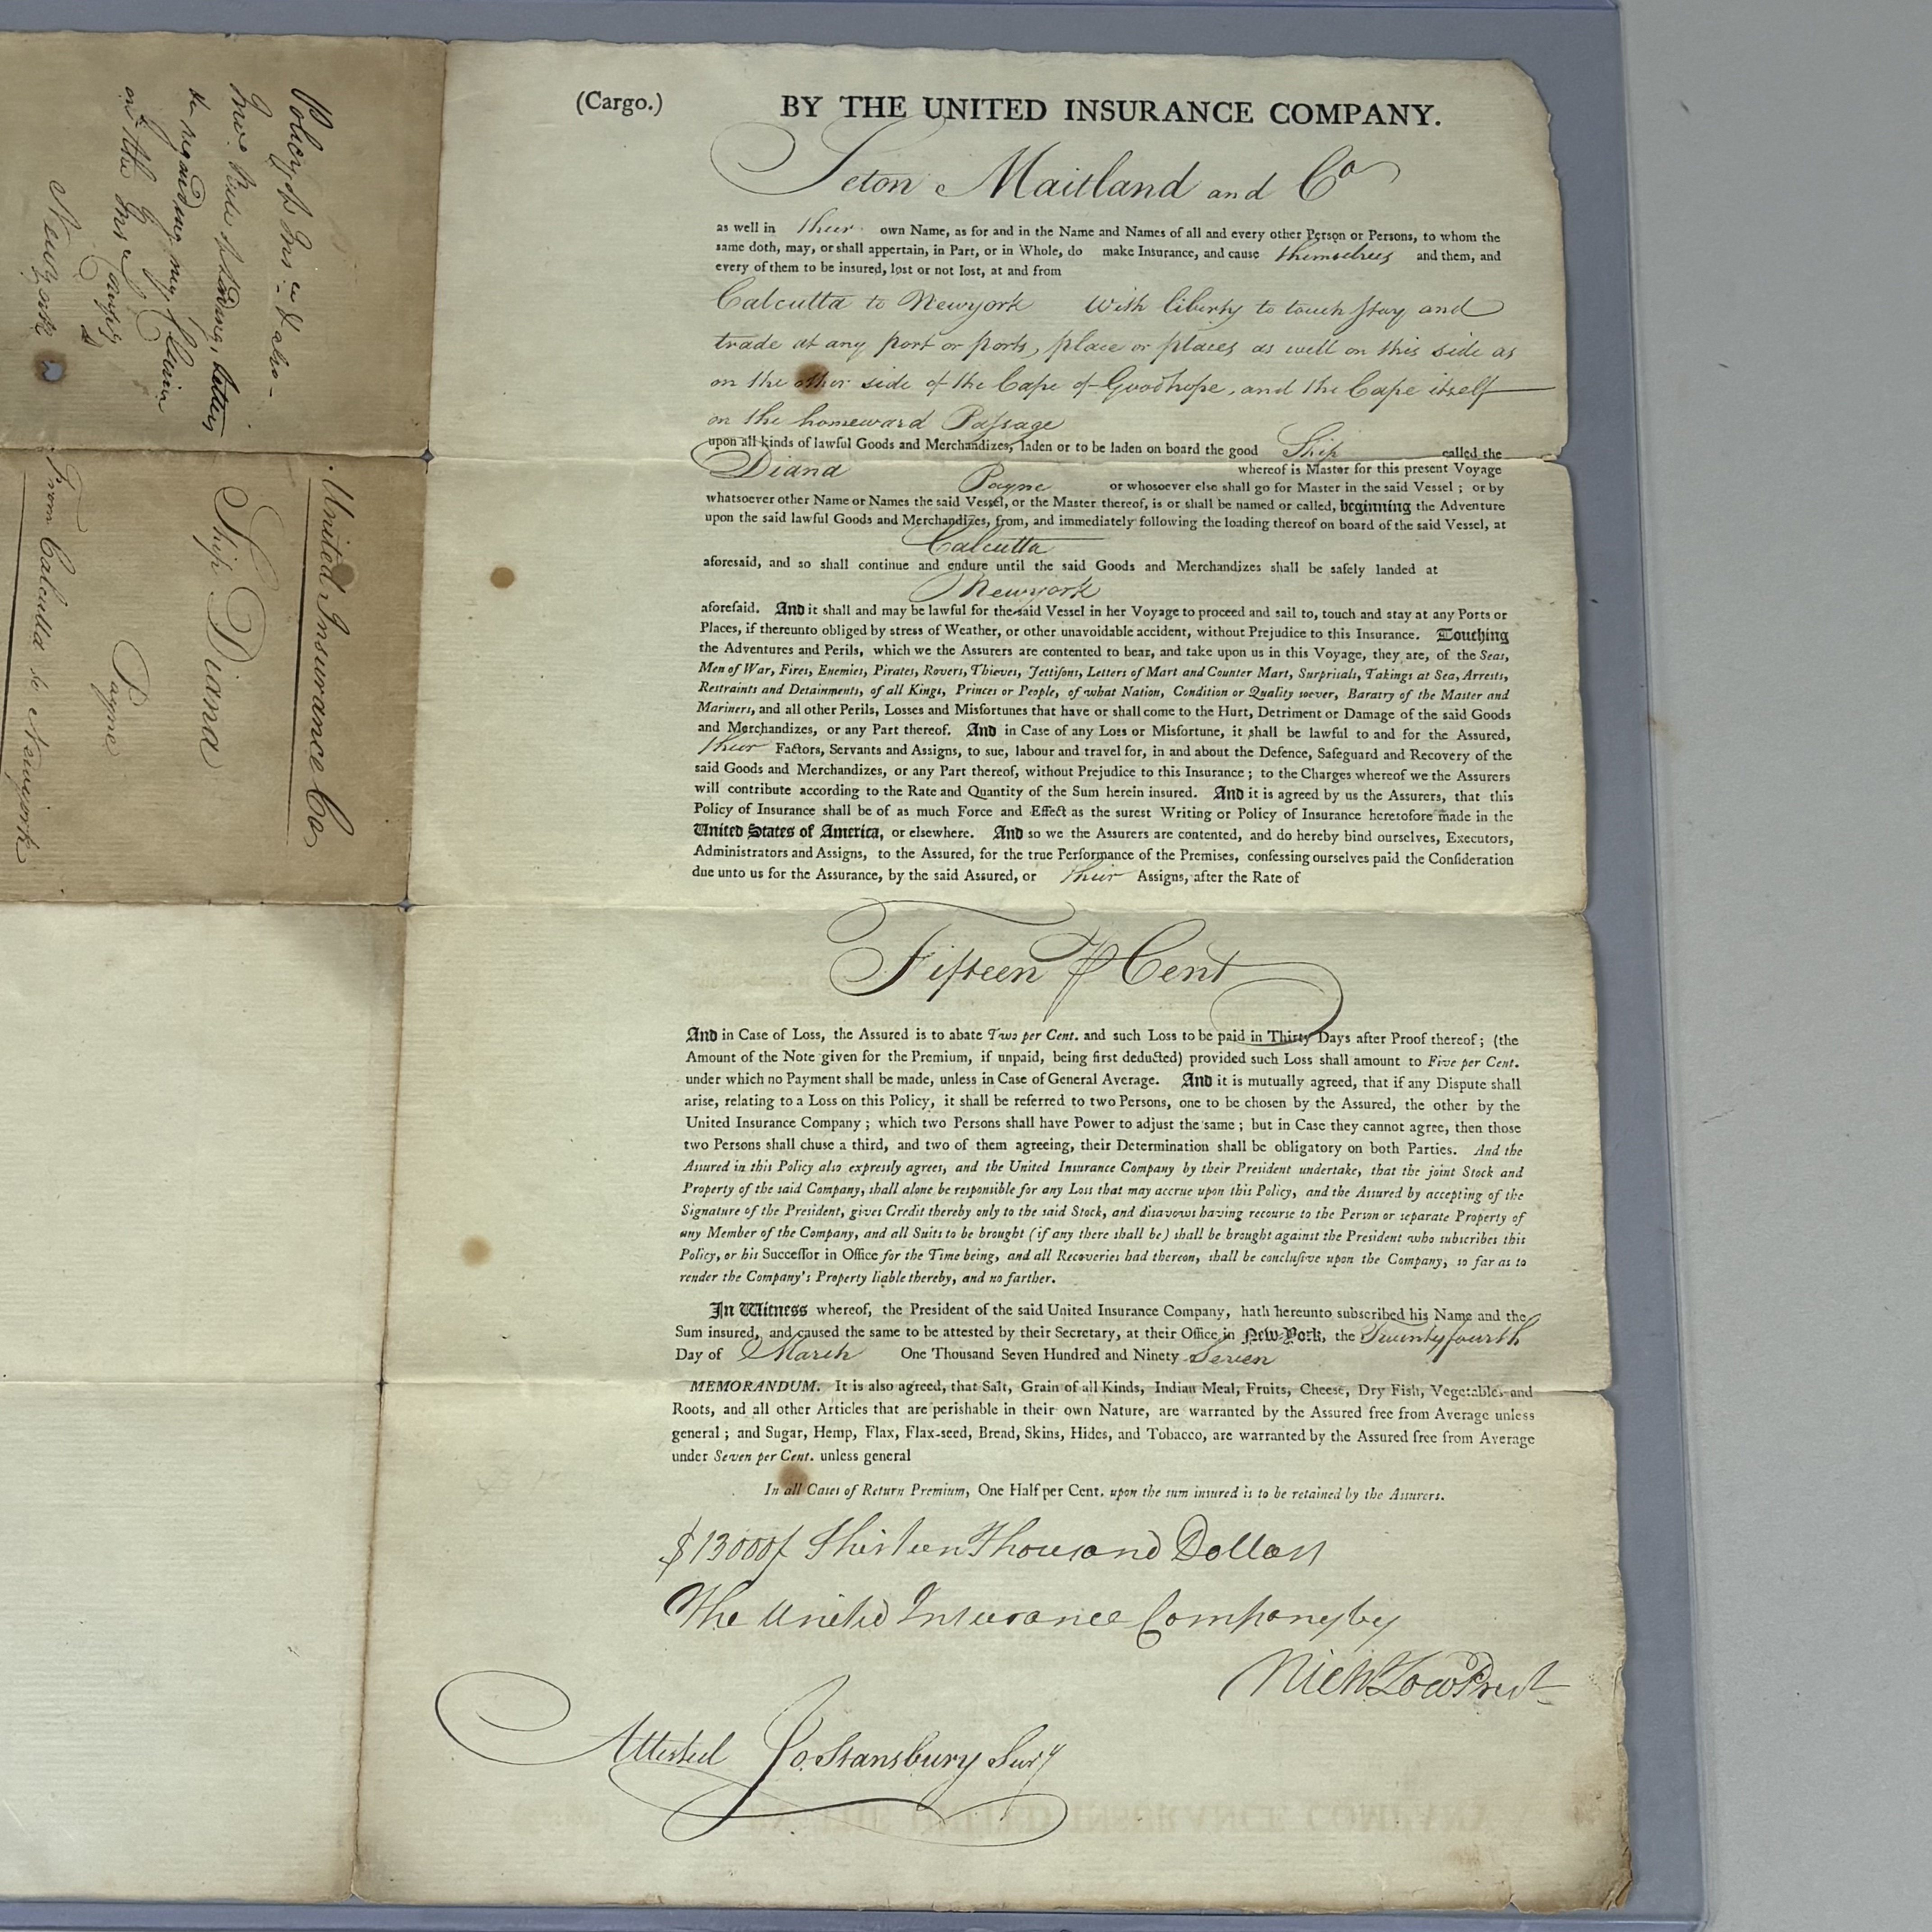 (Cargo.) BY THE UNITED INSURANCE COMPANY.
Seton Maitland and Co
as well in their own Name, as for and in the Name and Names of all and every other Person or Persons, to whom the
same doth, may, or shall appertain, in Part, or in Whole, do make Insurance, and cause themselves and them, and
every of them to be insured, lost or not lost, at and from
Calcutta to Newyork With liberty to touch stay and
trade at any port or ports, place or places as well on this side as
on the other side of the Cape of Good hope, and the Cape itself
on the homeward Passage
upon all kinds of lawful Goods and Merchandizes, laden or to be laden on board the good Ship called the
Diana whereof is Master for this present Voyage
Payne or whosoever else shall go for Master in the said Vessel; or by
whatsoever other Name or Names the said Vessel, or the Master thereof, is or shall be named or called, beginning the Adventure
upon the said lawful Goods and Merchandizes, from, and immediately following the loading thereof on board of the said Vessel, at
Calcutta
aforesaid, and so shall continue and endure until the said Goods and Merchandizes shall be safely landed at
Newyork
aforesaid. And it shall and may be lawful for the said Vessel in her Voyage to proceed and sail to, touch and stay at any Ports or
Places, if thereunto obliged by stress of Weather, or other unavoidable accident, without Prejudice to this Insurance. Touching
the Adventures and Perils, which we the Assurers are contented to bear, and take upon us in this Voyage, they are, of the Seas,
Men of War, Fires, Enemies, Pirates, Rovers, Thieves, Jettisons, Letters of Mart and Counter Mart, Surprisals, Takings at Sea, Arrests,
Restraints and Detainments, of all Kings, Princes or People, of what Nation, Condition or Quality soever, Baratry of the Master and
Mariners, and all other Perils, Losses and Misfortunes that have or shall come to the Hurt, Detriment or Damage of the said Goods
and Merchandizes, or any Part thereof. And in Case of any Loss or Misfortune, it shall be lawful to and for the Assured,
their Factors, Servants and Assigns, to sue, labour and travel for, in and about the Defence, Safeguard and Recovery of the
said Goods and Merchandizes, or any Part thereof, without Prejudice to this Insurance; to the Charges whereof we the Assurers
will contribute according to the Rate and Quantity of the Sum herein insured. And it is agreed by us the Assurers, that this
Policy of Insurance shall be of as much Force and Effect as the surest Writing or Policy of Insurance heretofore made in the
United States of America, or elsewhere. And so we the Assurers are contented, and do hereby bind ourselves, Executors,
Administrators and Assigns, to the Assured, for the true Performance of the Premises, confessing ourselves paid the Consideration
due unto us for the Assurance, by the said Assured, or their Assigns, after the Rate of
Fifteen ⅌ Cent
And in Case of Loss, the Assured is to abate Two per Cent. and such Loss to be paid in Thirty Days after Proof thereof; (the
Amount of the Note given for the Premium, if unpaid, being first deducted) provided such Loss shall amount to Five per Cent.
under which no Payment shall be made, unless in Case of General Average. And it is mutually agreed, that if any Dispute shall
arise, relating to a Loss on this Policy, it shall be referred to two Persons, one to be chosen by the Assured, the other by the
United Insurance Company; which two Persons shall have Power to adjust the same; but in Case they cannot agree, then those
two Persons shall chuse a third, and two of them agreeing, their Determination shall be obligatory on both Parties. And the
Assured in this Policy also expressly agrees, and the United Insurance Company by their President undertake, that the joint Stock and
Property of the said Company, shall alone be responsible for any Loss that may accrue upon this Policy, and the Assured by accepting of the
Signature of the President, gives Credit thereby only to the said Stock, and disavows having recourse to the Person or separate Property of
any Member of the Company, and all Suits to be brought (if any there shall be) shall be brought against the President who subscribes this
Policy, or his Successor in Office for the Time being, and all Recoveries had thereon, shall be conclusive upon the Company, so far as to
render the Company's Property liable thereby, and no farther.
In Witness whereof, the President of the said United Insurance Company, hath hereunto subscribed his Name and the
Sum insured, and caused the same to be attested by their Secretary, at their Office in New-York, the Twenty fourth
Day of March One Thousand Seven Hundred and Ninety Seven
MEMORANDUM. It is also agreed, that Salt, Grain of all Kinds, Indian Meal, Fruits, Cheese, Dry Fish, Vegetables and
Roots, and all other Articles that are perishable in their own Nature, are warranted by the Assured free from Average unless
general; and Sugar, Hemp, Flax, Flax-seed, Bread, Skins, Hides, and Tobacco, are warranted by the Assured free from Average
under Seven per Cent. unless general
In all Cases of Return Premium, One Half per Cent. upon the sum insured is to be retained by the Assurers.
$13000/ Thirteen Thousand Dollars
The United Insurance Company by
Nich Low Presit
Attested Jo. Stansbury Secry
United Insurance Co
Ship Diana
Payne
From Calcutta to Newyork
Policy of Ins
letters
regarding my Claim
on the Ins
Cargo
Newyork